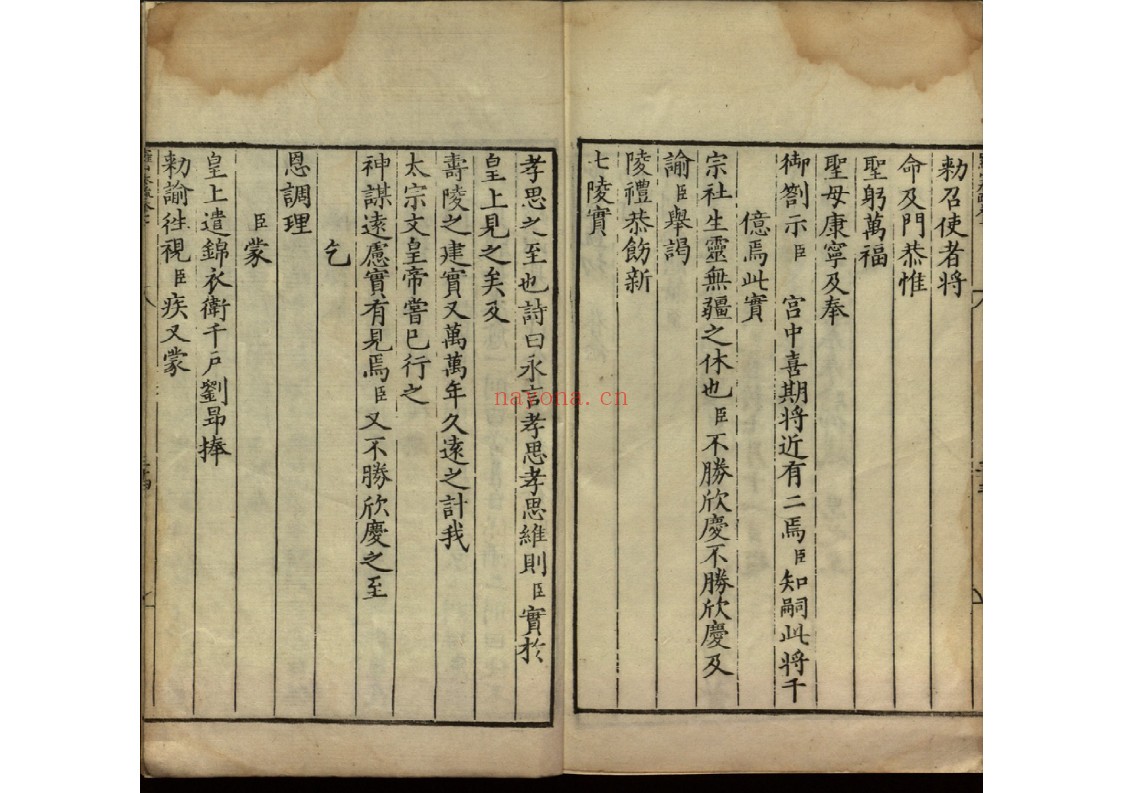 勑召使者將
命及門恭惟
聖躬萬福
聖母康寧及奉
御劄示臣 宫中喜期將近有二焉臣知嗣此將千
億焉此實
宗社生靈無疆之休也臣不勝欣慶不勝欣慶及
諭臣舉謁
陵禮恭飭新
七陵實
孝思之至也詩曰永言孝思孝思維則臣實於
皇上見之矣及
壽陵之建實又萬萬年久遠之計我
太宗文皇帝嘗已行之
神謀遠慮實有見焉臣又不勝欣慶之至
乞
恩調理
臣蒙
皇上遣錦衣衛千戶劉昂捧
勑諭徃視臣疾又蒙
nayona.cn